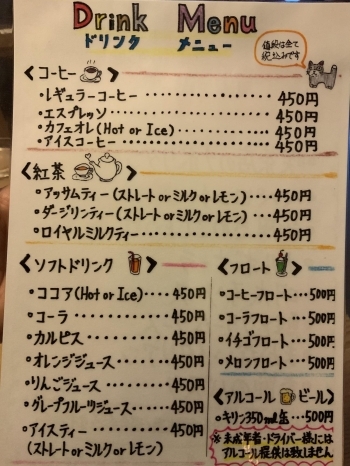 Drink Menu
ドリンク メニュー
価格は全て
税込みです
<コーヒー>
・レギュラーコーヒー・・・・・・・・・・450円
・エスプレッソ・・・・・・・・・・450円
・カフェオレ(Hot or Ice)・・・・・・・・・・450円
・アイスコーヒー・・・・・・・・・・450円
<紅茶>
・アッサムティー(ストレート or ミルク or レモン)・・・・450円
・ダージリンティー(ストレート or ミルク or レモン)・・・450円
・ロイヤルミルクティー・・・・・・・・・・450円
<ソフトドリンク>
・ココア(Hot or Ice)・・・・・450円
・コーラ・・・・・・・・・・450円
・カルピス・・・・・・・・・450円
・オレンジジュース・・・・・450円
・りんごジュース・・・・・・450円
・グレープフルーツジュース・・・・450円
・アイスティー・・・・・・・450円
(ストレート or ミルク or レモン)
<フロート>
・コーヒーフロート・・・500円
・コーラフロート・・・・500円
・イチゴフロート・・・・500円
・メロンフロート・・・・500円
<アルコール ビール>
・キリン350ml缶・・・500円
※未成年者・ドライバー様には
アルコール提供は致しません